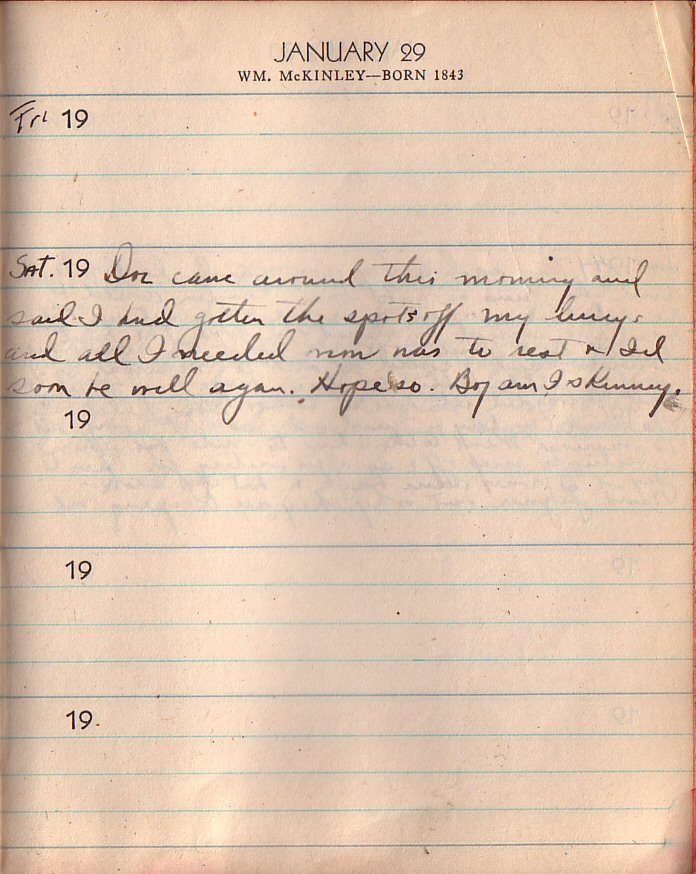 JANUARY 29
WM. McKINLEY—BORN 1843
Fri 19
Sat. 19 Doc came around this morning and
said I had gotten the spots off my lungs
and all I needed now was to rest & I'd
soon be well again. Hope so. Boy am I skinney.
19
19
19